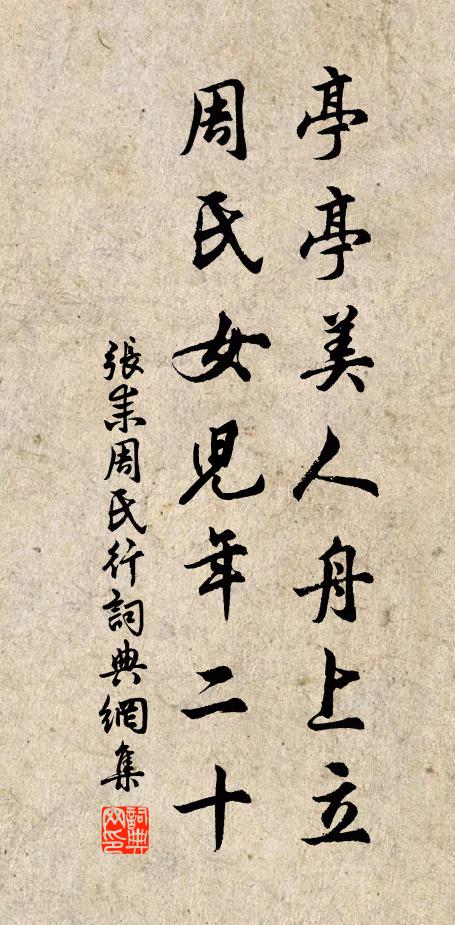 亭亭美人舟上立
周氏女兒年二十
張耒周氏行詞典網集
詞典网印